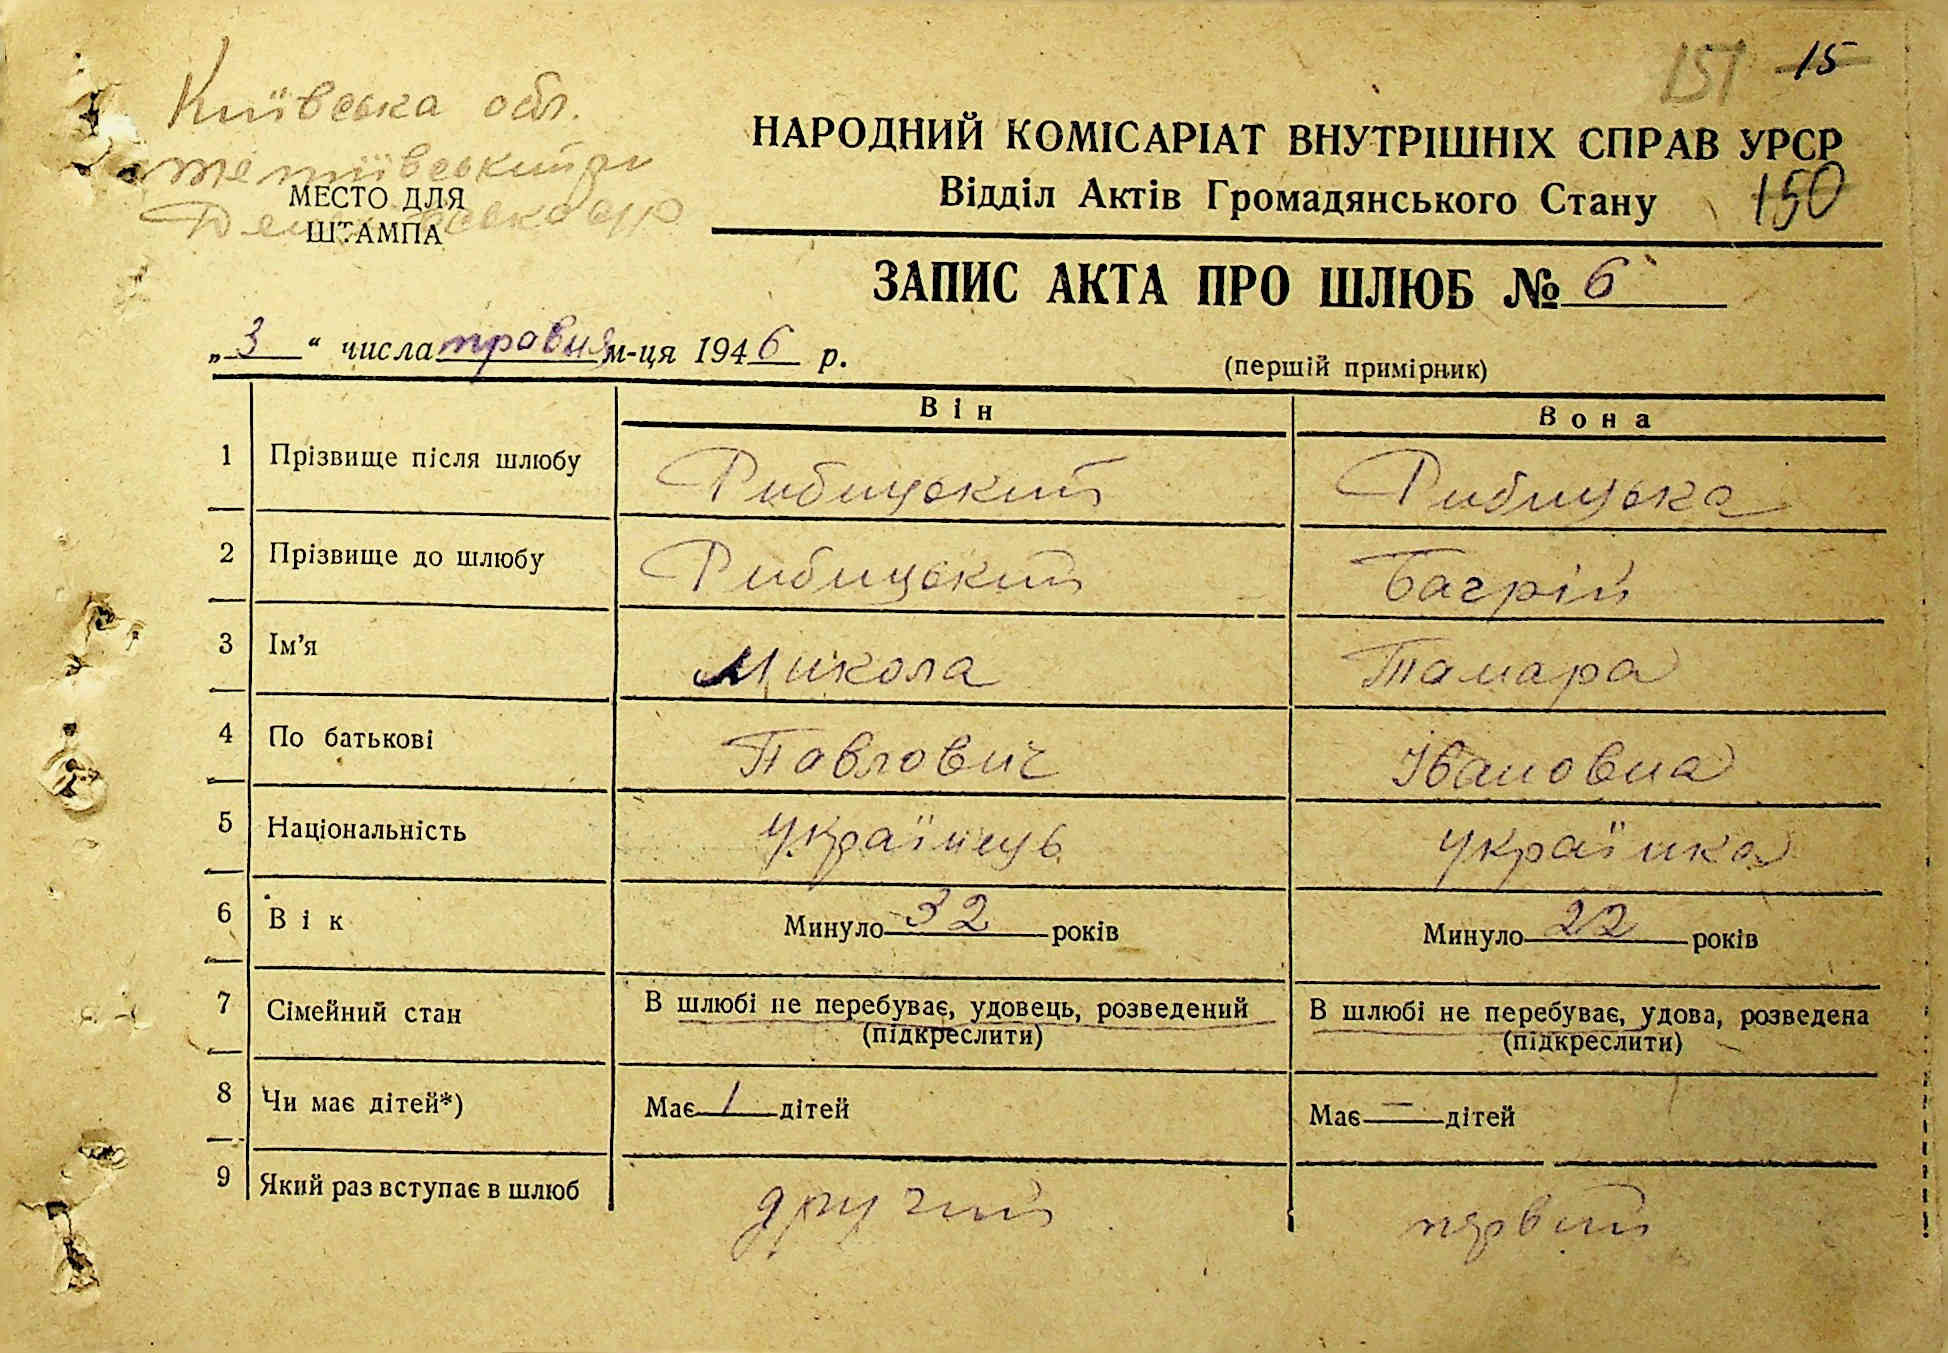 151 15
Київська обл.
тетіївський р-н
МЕСТО ДЛЯ
ШТАМПА
НАРОДНИЙ КОМІСАРІАТ ВНУТРІШНІХ СПРАВ УРСР
Відділ Актів Громадянського Стану
150
ЗАПИС АКТА ПРО ШЛЮБ № 6
„3“ числа травня м-ця 1946 р.
(першій примірник)
Він Вона
1 Прізвище після шлюбу Рибицький Рибицька
2 Прізвище до шлюбу Рибицький Багрій
3 Ім’я Микола Тамара
4 По батькові Павлович Івановна
5 Національність українець українка
6 Вік Минуло 32 років Минуло 22 років
7 Сімейний стан В шлюбі не перебуває, удовець, розведений В шлюбі не перебуває, удова, розведена
(підкреслити) (підкреслити)
8 Чи має дітей*) Має 1 дітей Має — дітей
9 Який раз вступає в шлюб другий первий